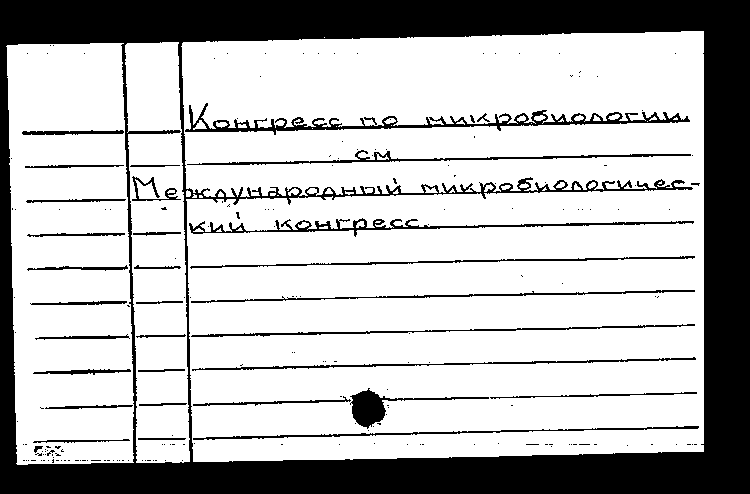 Конгресс по микробиологии
см
Международный микробиологичес-
кий конгресс.